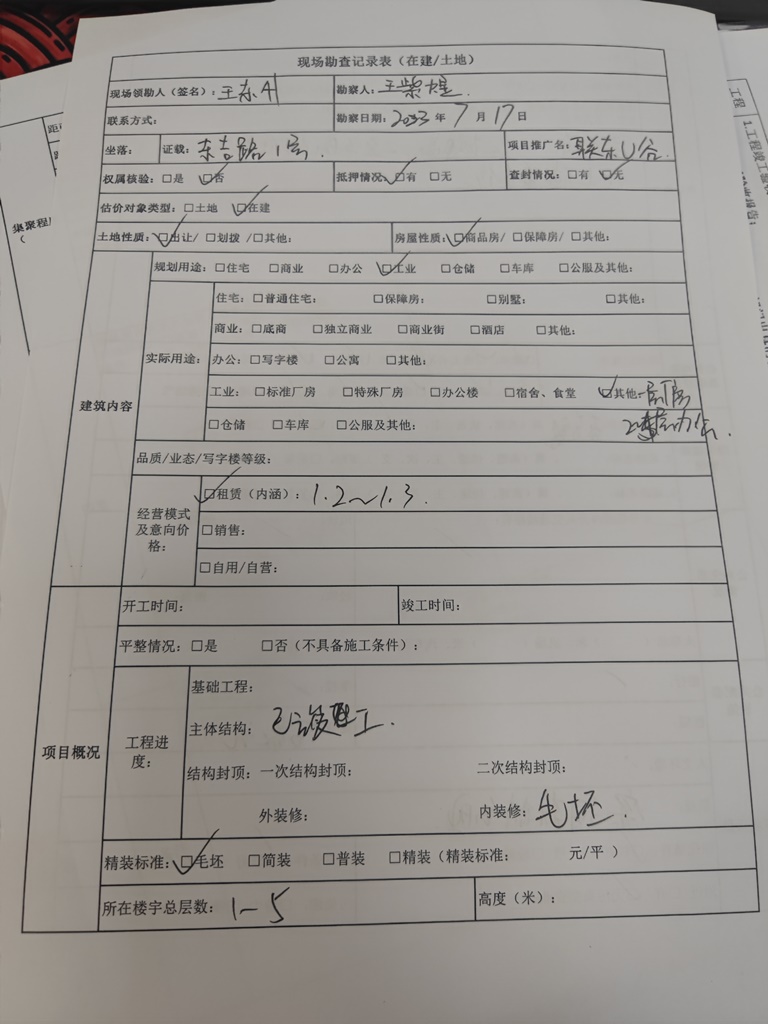 现场勘查记录表（在建/土地）
现场领勘人（签名）：王东 勘察人：王紫煌
联系方式： 勘察日期：2023 年 7 月 17 日
坐落： 证载：东吉路1号. 项目推广名：联东U谷
权属核验：□是 ☑否 抵押情况：☑有 □无 查封情况：□有 ☑无
估价对象类型：□土地 ☑在建
土地性质：☑出让/ □划拨 /□其他： 房屋性质：☑商品房/ □保障房/ □其他：
建筑内容
规划用途：□住宅 □商业 □办公 ☑工业 □仓储 □车库 □公服及其他：
实际用途：
住宅：□普通住宅： □保障房： □别墅： □其他：
商业：□底商 □独立商业 □商业街 □酒店 □其他：
办公：□写字楼 □公寓 □其他：
工业：□标准厂房 □特殊厂房 □办公楼 □宿舍、食堂 ☑其他：厂房
□仓储 □车库 □公服及其他：
品质/业态/写字楼等级：
经营模式及意向价格：
☑租赁（内涵）：1.2～1.3.
□销售：
□自用/自营：
项目概况
开工时间： 竣工时间：
平整情况：□是 □否（不具备施工条件）：
工程进度：
基础工程：
主体结构：已竣工.
结构封顶：一次结构封顶： 二次结构封顶：
外装修： 内装修：毛坯.
精装标准：☑毛坯 □简装 □普装 □精装（精装标准： 元/平 ）
所在楼宇总层数：1-5 高度（米）：
集聚程
（
距
工程
1.工程竣工验
报告：